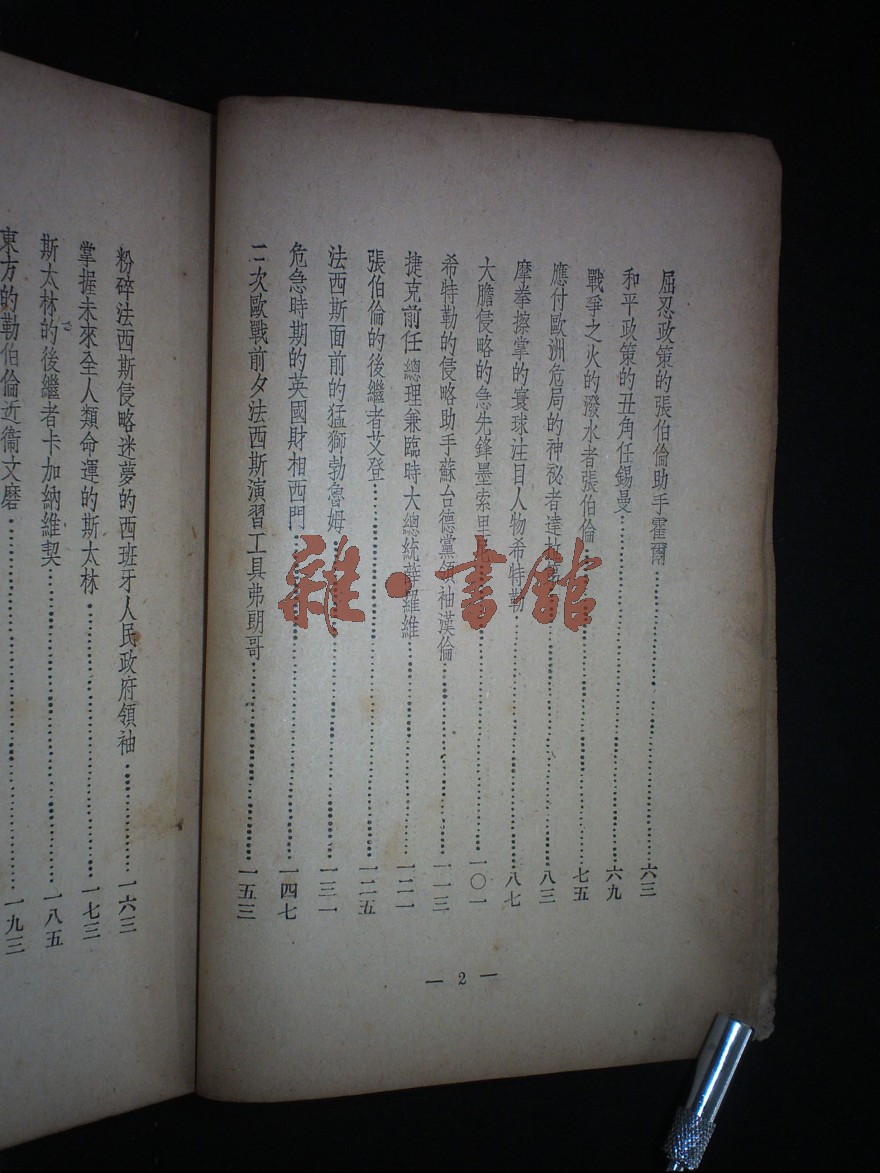 屈忍政策的張伯倫助手霍爾…………六三
和平政策的丑角任錫曼…………六九
戰爭之火的潑水者張伯倫…………七五
應付歐洲危局的神祕者達…………八三
摩拳擦掌的寰球注目人物希特勒…………八七
大膽侵略的急先鋒墨索里尼…………一〇一
希特勒的侵略助手蘇台德黨領袖漢倫…………一一三
捷克前任總理兼臨時大總統薛羅維…………一二一
張伯倫的後繼者艾登…………一二五
法西斯面前的猛獅勃魯姆…………一三一
危急時期的英國財相西門…………一四七
二次歐戰前夕法西斯演習工具弗朗哥…………一五三
— 2 —
粉碎法西斯侵略迷夢的西班牙人民政府領袖…………一六三
掌握未來全人類命運的斯太林…………一七三
斯太林的後繼者卡加納維契…………一八五
東方的勒伯倫近衞文磨…………一九三
雜·書館